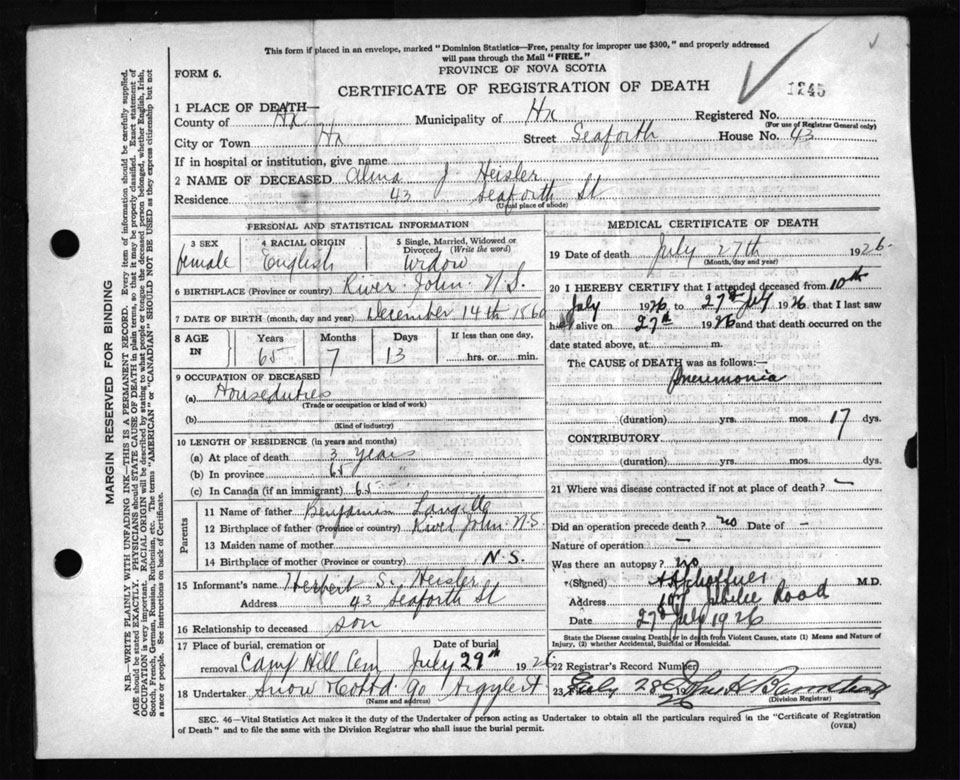 This form if placed in an envelope, marked "Dominion Statistics—Free, penalty for improper use $300," and properly addressed
will pass through the Mail "FREE."
PROVINCE OF NOVA SCOTIA
FORM 6.
CERTIFICATE OF REGISTRATION OF DEATH
1245
1 PLACE OF DEATH—
County of Hx Municipality of Hx Registered No.
(For use of Registrar General only)
City or Town Hx Street Seaforth House No. 43
If in hospital or institution, give name
2 NAME OF DECEASED Alma J Heisler
Residence 43 Seaforth St
(Usual place of abode)
PERSONAL AND STATISTICAL INFORMATION
3 SEX 4 RACIAL ORIGIN 5 Single, Married, Widowed or
Divorced, (Write the word)
female English Widow
6 BIRTHPLACE (Province or country) River John N.S.
7 DATE OF BIRTH (month, day and year) December 14th 1860
8 AGE IN Years Months Days If less than one day,
65 7 13 hrs. or min.
9 OCCUPATION OF DECEASED
(a) Houseduties
(Trade or occupation or kind of work)
(b)
(Kind of industry)
10 LENGTH OF RESIDENCE (in years and months)
(a) At place of death 3 years
(b) In province 65 "
(c) In Canada (if an immigrant) 65
Parents
11 Name of father Benjamin Langille
12 Birthplace of father (Province or country) River John N.S.
13 Maiden name of mother
14 Birthplace of mother (Province or country) N.S.
15 Informant's name Herbert S. Heisler
Address 43 Seaforth St
16 Relationship to deceased son
17 Place of burial, cremation or Date of burial
removal Camp Hill Cem July 29th 1926
18 Undertaker Snow & Co Ltd. 90 Argyle St
(Name and address)
MEDICAL CERTIFICATE OF DEATH
19 Date of death July 27th 1926
(Month, day and year)
20 I HEREBY CERTIFY that I attended deceased from 10th
July 1926 to 27th July 1926 that I last saw
h alive on 27th 1926 and that death occurred on the
date stated above, at m.
The CAUSE of DEATH was as follows:—
Pneumonia
(duration) yrs. mos. 17 dys.
CONTRIBUTORY
(duration) yrs. mos. dys.
21 Where was disease contracted if not at place of death? —
Did an operation precede death? no Date of –
Nature of operation —
Was there an autopsy? no
(Signed) Schaffner M.D.
Address Jubilee Road
Date 27th July 1926
State the Disease causing Death, or in death from Violent Causes, state (1) Means and Nature of
Injury, (2) whether Accidental, Suicidal or Homicidal.
22 Registrar's Record Number
23 July 28 1926
(Division Registrar)
SEC. 46—Vital Statistics Act makes it the duty of the Undertaker or person acting as Undertaker to obtain all the particulars required in the "Certificate of Registration
of Death" and to file the same with the Division Registrar who shall issue the burial permit.
(OVER)
MARGIN RESERVED FOR BINDING
N.B.—WRITE PLAINLY WITH UNFADING INK—THIS IS A PERMANENT RECORD. Every item of information should be carefully supplied.
AGE should be stated EXACTLY. PHYSICIANS should STATE CAUSE OF DEATH in plain terms, so that it may be properly classified. Exact statement of
OCCUPATION is very important. RACIAL ORIGIN will be described by stating to what people or tongue the deceased person belonged, whether English, Irish,
Scotch, French, German, Russian, Ruthenian, etc. The terms "AMERICAN" or "CANADIAN" SHOULD NOT BE USED as they express citizenship but not
a race or people. See instructions on back of Certificate.